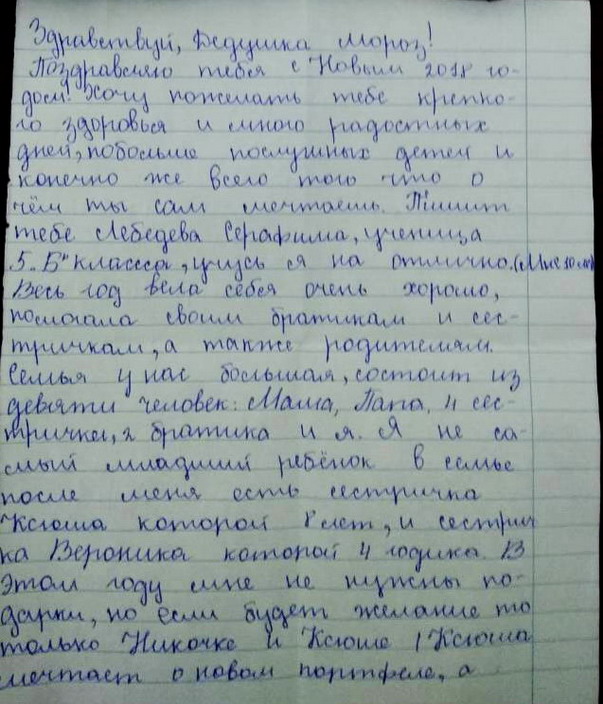 Здравствуй, Дедушка Мороз!
Поздравляю тебя с Новым 2018 го-
дом! Хочу пожелать тебе крепко-
го здоровья и много радостных
дней, побольше послушных детей и
конечно же всего того что о
чём ты сам мечтаешь. Пишит
тебе Лебедева Серафима, ученица
5 „Б" класса, учусь я на отлично. (Мне 10 лет)
Весь год вела себя очень хорошо,
помогала своим братикам и сес-
тричкам, а также родителям.
Семья у нас большая, состоит из
девяти человек: Мама, Папа, 4 сес-
трички, 2 братика и я. Я не са-
мый младший ребёнок в семье
после меня есть сестричка
Ксюша которой 8 лет, и сестрич
ка Вероника которой 4 годика. В
этом году мне не нужны по-
дарки, но если будет желание то
только Никочке и Ксюше (Ксюша
мечтает о новом портфеле, а